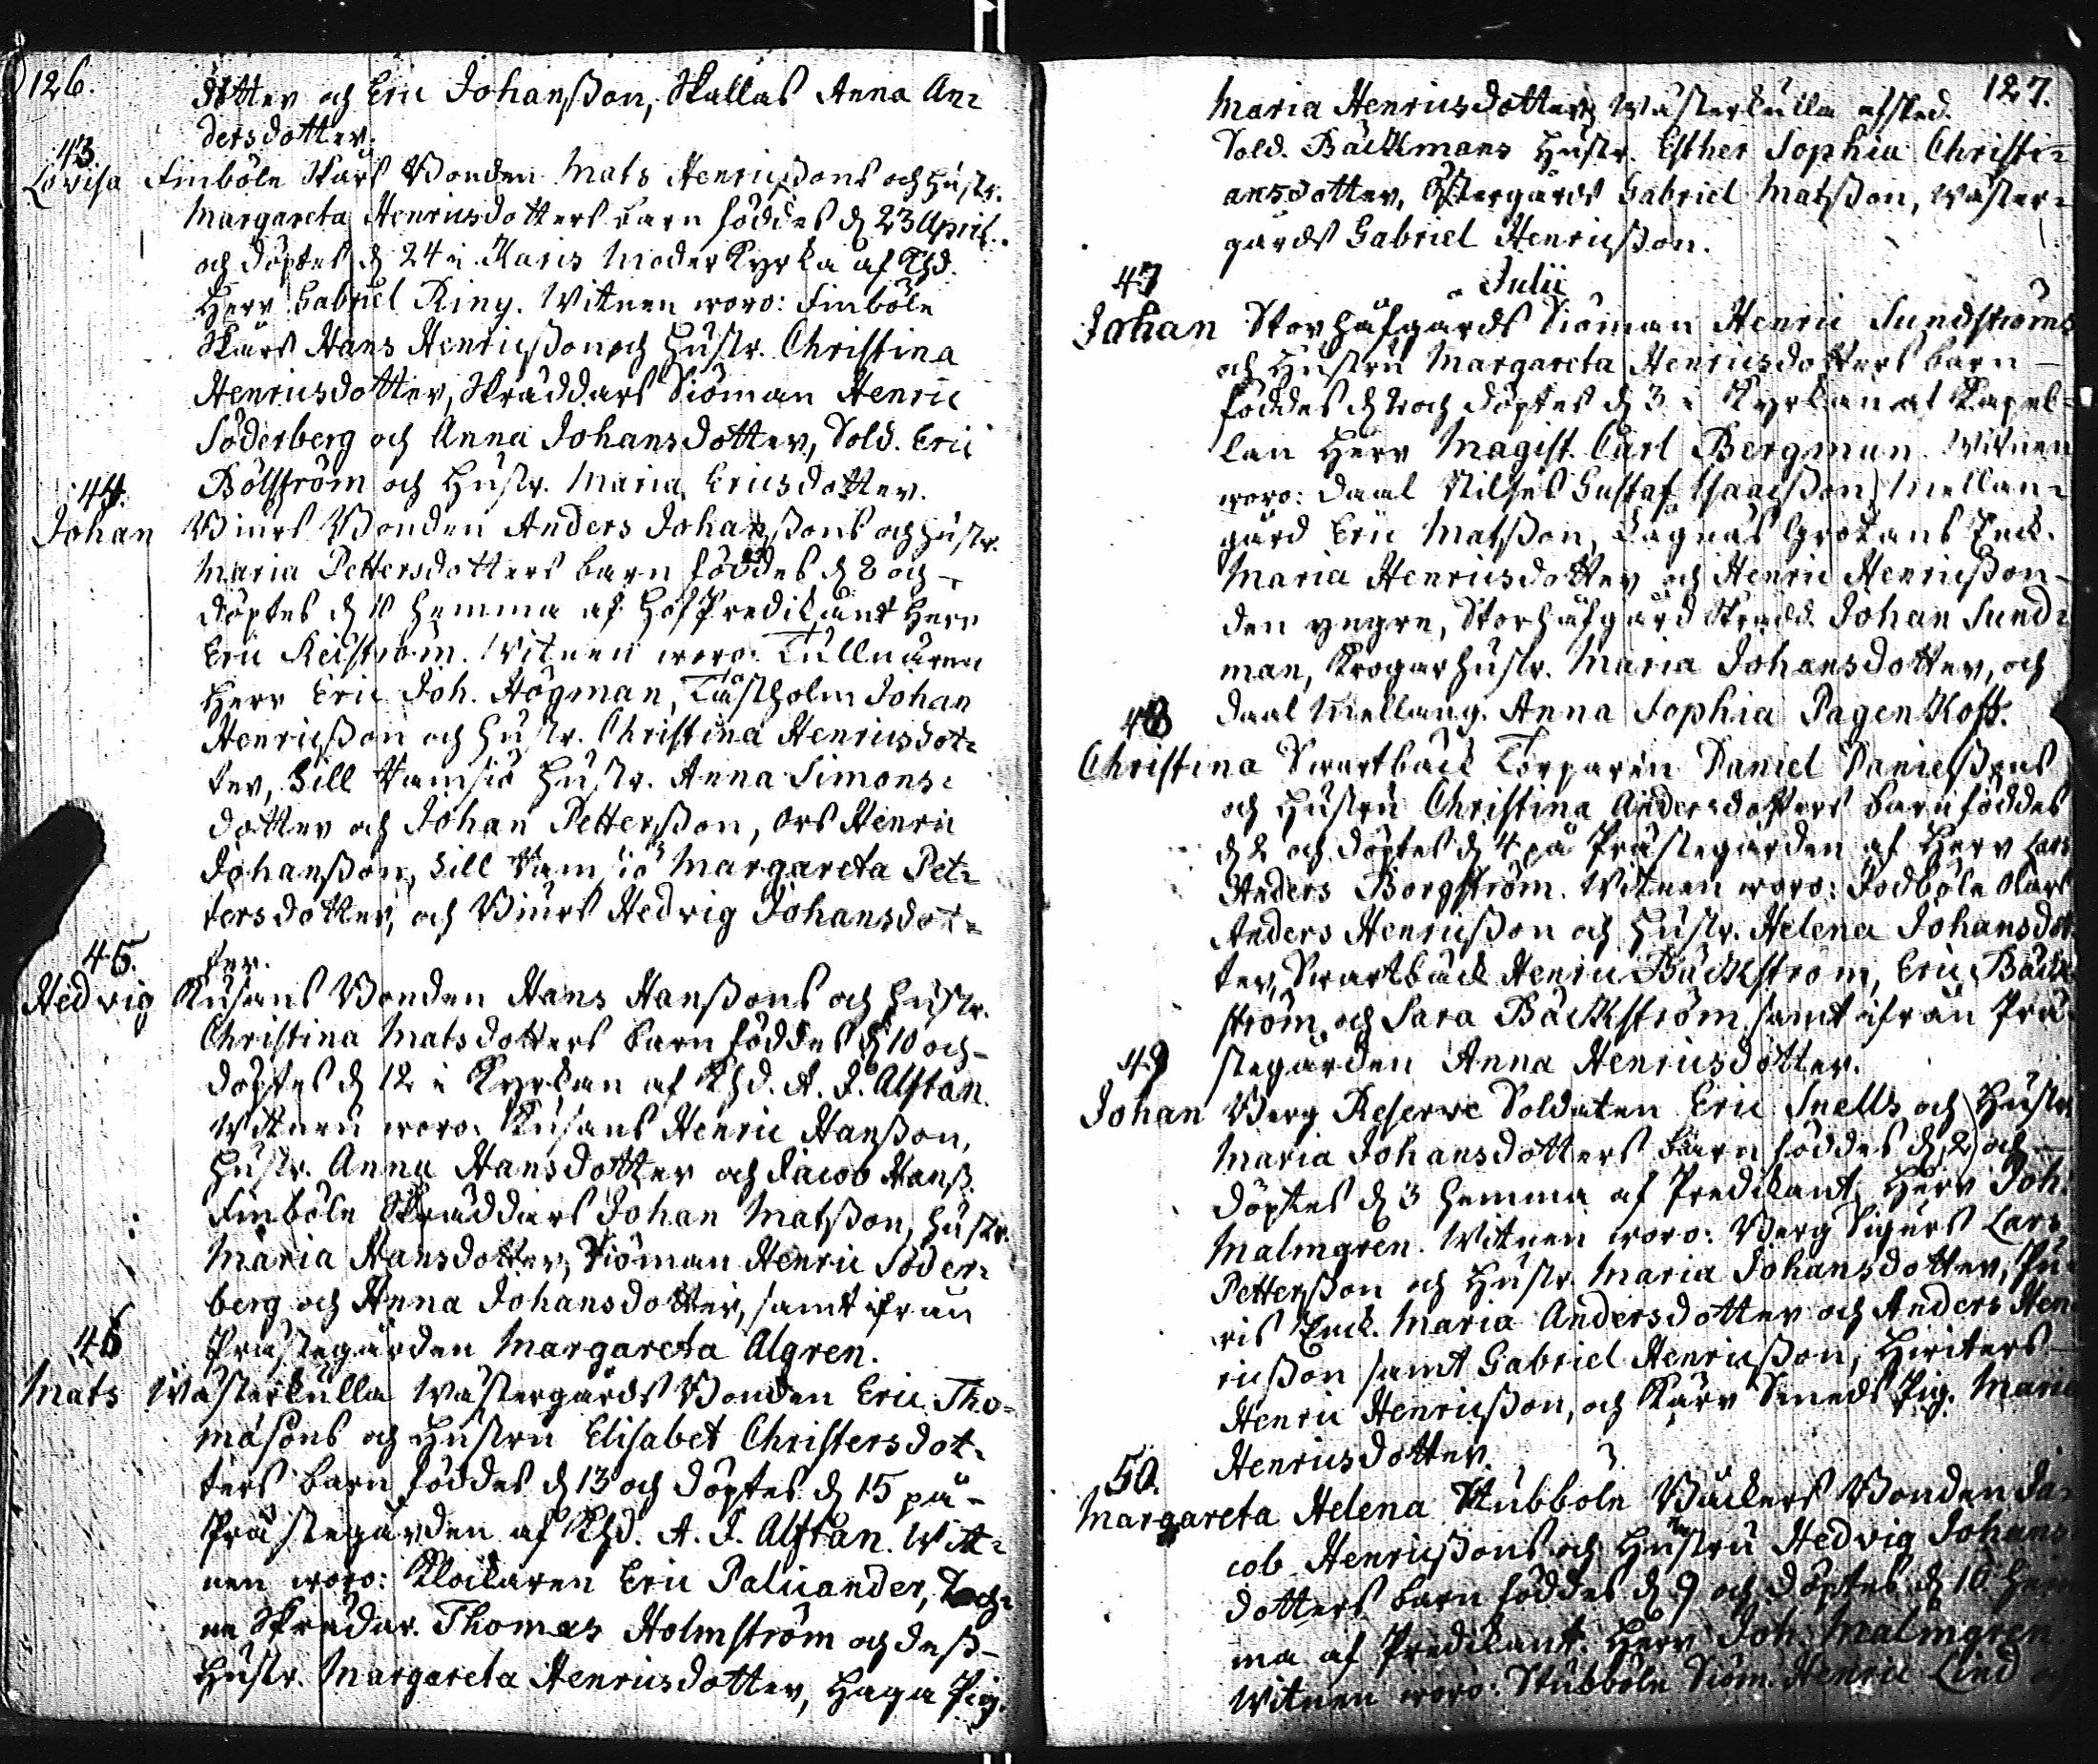 126.
dotter och Eric Johansson, Skallas Anna An=
dersdotter.
43.
Lovisa Finböle Skärs Bonden Mats Henricssons och hustr.
Margareta Henricsdotters barn föddes d 23 April.
och döptes d 24 i Karis Moder Kyrka af Khd.
Herr Gabriel Ring. Witnen woro: Finböle
Skärs Hans Henricsson och Hustr. Christina
Henricsdotter, Skräddars Siöman Henric
Söderberg och Anna Johansdotter, Sold. Eric
Bölström och Hustr. Maria Ericsdotter.
44.
Johan Biurs Bonden Anders Johanssons och hustr.
Maria Pettersdotters barn föddes d 8 och
döptes d hemma af HofPredikant Herr
Eric Reiström. Witnen woro: Tullnären
Herr Eric Joh. Högman, Johan
Henricsson och hustr. Christina Henricsdot=
ter, Sill Hustr. Anna Simons=
dotter och Johan Pettersson, Ors Henric
Johansson, Sill Margareta Pet=
tersdotter, och Biurs Hedvig Johansdot=
ter.
45.
Hedvig Kusans Bonden Hans Hanssons och hustr.
Christina Matsdotters barn föddes d 10 och
döptes d 12 i Kyrkan af Khd. A. J. Alftan.
Witnen woro: Kusans Henric Hansson,
hustr. Anna Hansdotter och Jacob Hanss.
Finböle Skräddars Johan Matsson, hustr.
Maria Hansdotter, Siöman Henric Söder=
berg och Anna Johansdotter, samt ifrån
Prästegården Margareta Algren.
46
Mats Wästerkulla Wästergårds Bonden Eric Tho=
masons och Hustru Elisabet Christersdot=
ters barn föddes d 13 och döptes d 15 på
Prästegården af Khd. A. J. Alftan. Wit=
nen woro: Klockaren Eric Palicander,
Skrädar. Thomas Holmström och dess
Hustr. Margareta Henricsdotter, Haga Pig.
127.
Maria Henricsdotter, Wästerkulla afsked.
Sold. Bäckmans Hustr. Esther Sophia Christi=
ansdotter, Östergårds Gabriel Matsson, Wäster=
gårds Gabriel Henricsson.
Julii
47
Johan Storhäfgårds Siöman Henric Sundströms
och Hustru Margareta Henricsdotters barn
föddes d 2 och döptes d 3 i Kyrkan af Kapel=
lan Herr Magist. Carl Bergman. Witnen
woro: Daal Nilses Gustaf Isaacsson, Mellan=
gård Eric Matsson, Enk.
Maria Henricsdotter och Henric Henricsson
den yngre, Storhäfgård Skrädd. Johan Sund=
man, Krogarhustr. Maria Johansdotter, och
Daal Mellang. Anna Sophia Pagenkoff.
48
Christina Swartbäck Torparen Daniel Danielssons
och Hustru Christina Andersdotters barn föddes
d 2 och döptes d 4 på Prästegården af Herr Lars
Anders Borgström. Witnen woro: Jodböle Olars
Anders Henricsson och Hustr. Helena Johansdot
ter, Swartbäck Henric Bäckström, Eric Bäck
ström, och Sara Bäckström, samt ifrån Prä=
stegården Anna Henricsdotter.
49
Johan Berg Reserve Soldaten Eric Snells och Hustr
Maria Johansdotters barn föddes d 2 och
döptes d 3 hemma af Predikant Herr Joh.
Malmgren. Witnen woro: Berg Sigurs Lars
Pettersson och Hustr. Maria Johansdotter, Pu=
ris Enk. Maria Andersdotter och Anders Hen
ricsson samt Gabriel Henricsson, Hiriters
Henric Henricsson, och Kärr Smeds Pig. Maria
Henricsdotter.
50.
Margareta Helena Stubböle Bäckers Bonden Ja=
cob Henricssons och Hustru Hedvig Johans=
dotters barn föddes d 9 och döptes d 10 hem
ma af Predikant. Herr Joh. Malmgren
Witnen woro: Stubböle Siöm. Henric Lind